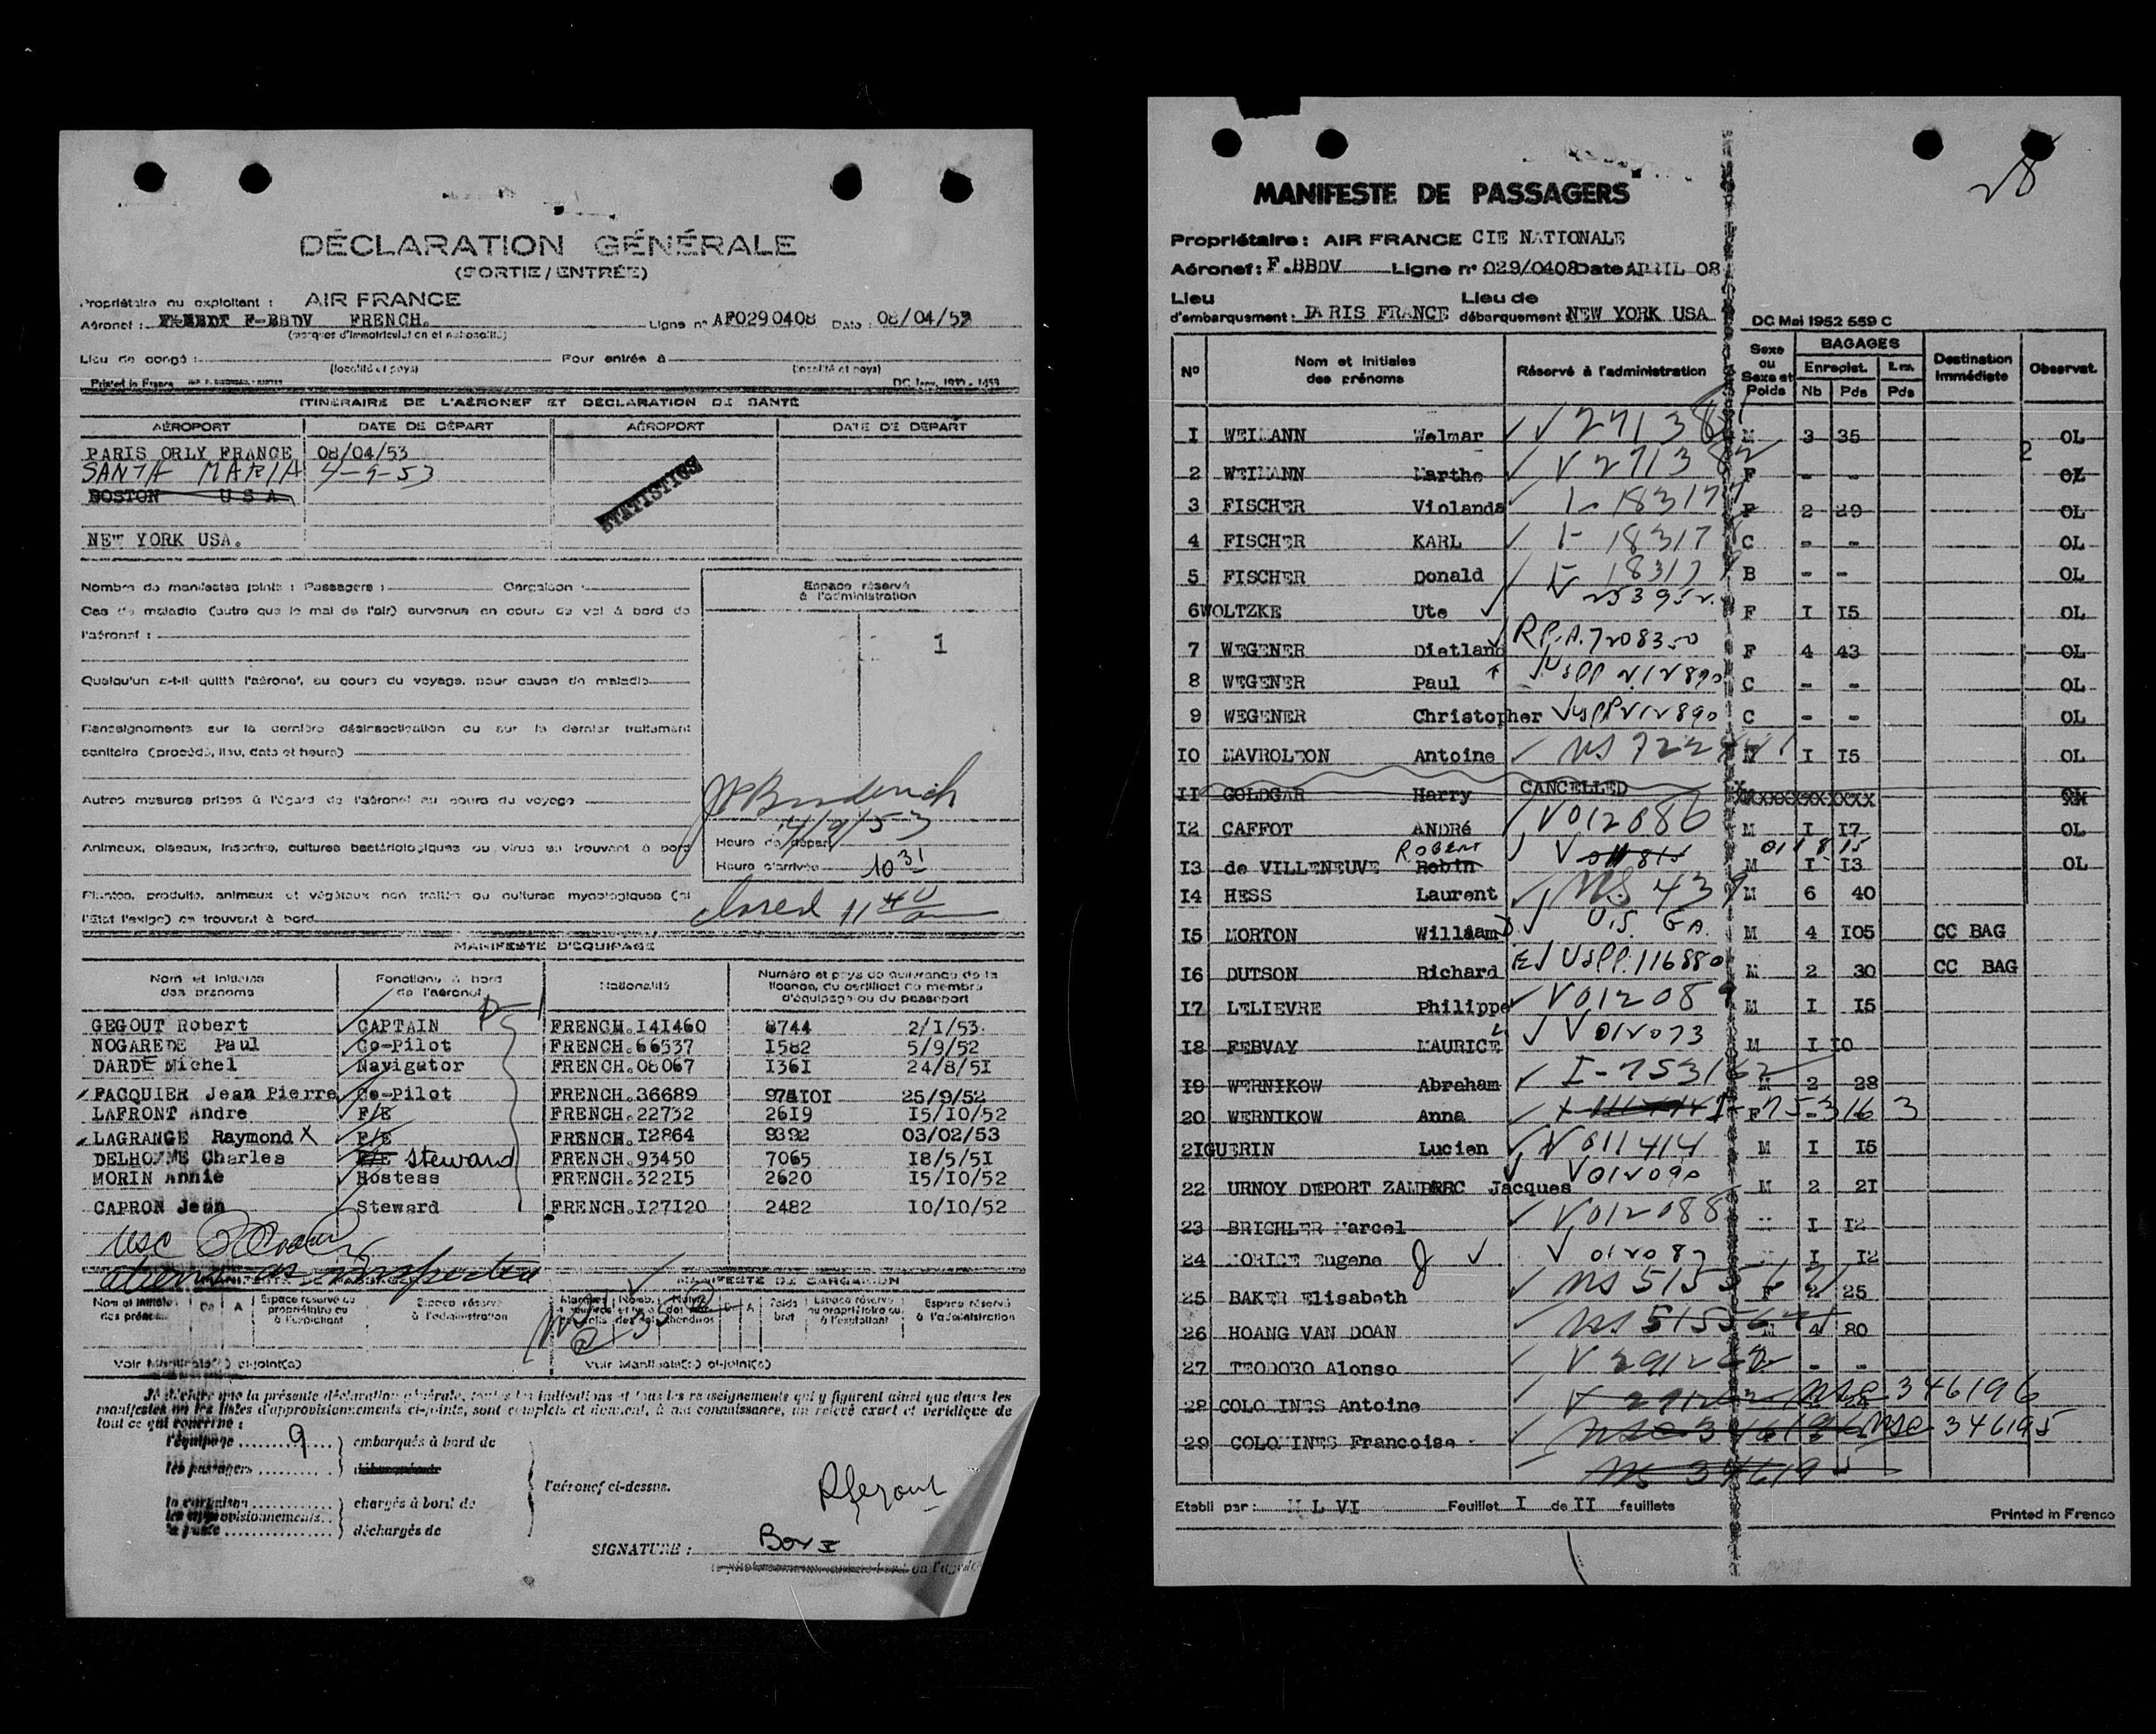 DÉCLARATION GÉNÉRALE
(SORTIE/ENTRÉE)
Propriétaire ou exploitant : AIR FRANCE
Aéronef : F-BBDT F-BBDV FRENCH. Ligne n° AF0290408 Date : 08/04/53
(marques d'immatriculation et nationalité)
Lieu de congé : Pour entrée à
(localité et pays) (localité et pays)
Printed in France
ITINÉRAIRE DE L'AÉRONEF ET DÉCLARATION DE SANTÉ
AÉROPORT DATE DE DÉPART AÉROPORT DATE DE DÉPART
PARIS ORLY FRANCE 08/04/53
SANTA MARIA 4-9-53
BOSTON USA
STATISTICS
NEW YORK USA.
Nombre de manifestes joints : Passagers : Cargaison :
Espace réservé
à l'administration
Cas de maladie (autre que le mal de l'air) survenus en cours de vol à bord de
l'aéronef :
1
Quelqu'un a-t-il quitté l'aéronef, au cours du voyage, pour cause de maladie
Renseignements sur la dernière désinsectisation ou sur le dernier traitement
sanitaire (procédé, lieu, date et heure)
Autres mesures prises à l'égard de l'aéronef au cours du voyage
4/9/53
Heure de départ
Animaux, oiseaux, insectes, cultures bactériologiques ou virus se trouvant à bord
Heure d'arrivée 10 31
Plantes, produits, animaux et végétaux non traités ou cultures mycologiques (si
closed 11 40 am
l'État l'exige) se trouvant à bord
MANIFESTE D'ÉQUIPAGE
Nom et initiales des prénoms Fonctions à bord de l'aéronef Nationalité Numéro et pays de délivrance de la licence, du certificat de membre d'équipage ou du passeport
GEGOUT Robert CAPTAIN FRENCH.141460 8744 2/1/53.
NOGAREDE Paul Co-Pilot FRENCH.66537 1582 5/9/52
DARDE Michel Navigator FRENCH.08067 1361 24/8/51
FACQUIER Jean Pierre Co-Pilot FRENCH.36689 25/9/52
LAFRONT Andre F/E FRENCH.22732 2619 15/10/52
LAGRANGE Raymond X F/E FRENCH.12864 9392 03/02/53
DELHOMME Charles F/E Steward FRENCH.93450 7065 18/5/51
MORIN Annie Hostess FRENCH.32215 2620 15/10/52
CAPRON Jean Steward FRENCH.127120 2482 10/10/52
MANIFESTE DE CARGAISON
Nom et initiales des prénoms De A Espace réservé au propriétaire ou à l'exploitant Espace réservé à l'administration
De A Poids brut Espace réservé au propriétaire ou à l'exploitant Espace réservé à l'administration
Voir Manifeste(s) ci-joint(s) Voir Manifeste(s) ci-joint(s)
Je déclare que la présente déclaration générale, toutes les indications et tous les renseignements qui y figurent ainsi que dans les
manifestes ou les listes d'approvisionnements ci-joints, sont complets et donnent, à ma connaissance, un relevé exact et véridique de
tout ce qui concerne :
l'équipage 9 embarqués à bord de
les passagers débarqués de
l'aéronef ci-dessus.
la cargaison chargés à bord de
les approvisionnements
la poste déchargés de
SIGNATURE :
28
MANIFESTE DE PASSAGERS
Propriétaire : AIR FRANCE CIE NATIONALE
Aéronef : F.BBDV Ligne n° 029/0408 Date APRIL 08
Lieu d'embarquement : PARIS FRANCE Lieu de débarquement : NEW YORK USA
DC Mai 1952 559 C
N° Nom et initiales des prénoms Réservé à l'administration Sexe ou Sexe et Poids BAGAGES Enregist. Nb Pds Pds Destination immédiate Observat.
1 WEIMANN Welmar V 271381 M 3 35 OL
2
2 WEIMANN Marthe V 271382 F - - OL
3 FISCHER Violanda I-183177 F 2 29 OL
4 FISCHER KARL I-183178 C - - OL
5 FISCHER Donald I-183179 B - - OL
6 WOLTZKE Ute V 253952 F 1 15 OL
7 WEGENER Dietland R.P.A.7208350 F 4 43 OL
8 WEGENER Paul USPP 212890 C - - OL
9 WEGENER Christopher USPP 212890 C - - OL
10 MAVROLEON Antoine M 1 15 OL
11 GOLDGAR Harry CANCELLED
12 CAFFOT ANDRé V012086 M 1 17 OL
13 de VILLENEUVE Robin ROBERT V 011815 011815 M 1 13 OL
14 HESS Laurent NS 439 M 6 40
15 MORTON William J U.S. GA. M 4 105 CC BAG
16 DUTSON Richard E USPP.116880 M 2 30 CC BAG
17 LELIEVRE Philippe V012089 M 1 15
18 FEBVAY MAURICE L V 012073 M 1 10
19 WERNIKOW Abraham I-753162 M 2 28
20 WERNIKOW Anna I-753163 F - -
21 GUERIN Lucien V011414 M 1 15
22 URNOY DEPORT Jacques V012090 M 2 21
23 BRICHLER Marcel V012088 M 1 12
24 MORICE Eugene J V 012087 M 1 12
25 BAKER Elisabeth F 2 25
26 HOANG VAN DOAN M 4 80
27 TEODORO Alonso - -
28 COLOMINES Antoine nsc 346196
29 COLOMINES Francoise nsc 346195
Etabli par : Feuillet I de II feuillets
Printed in France